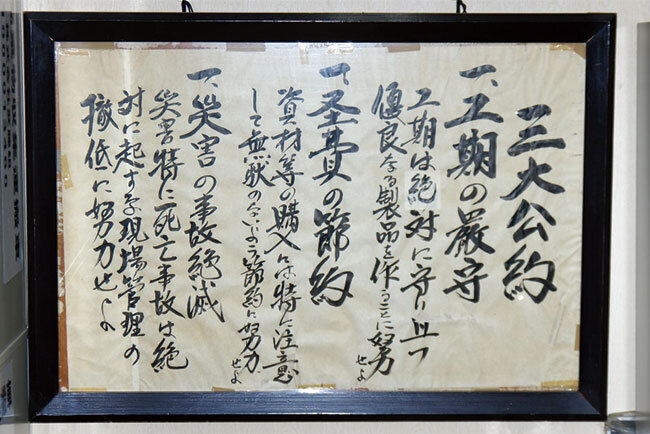 三大公約
一、工期の厳守
工期は絶対に守り且つ
優良なる製品を作ることに努力せよ
一、経費の節約
資材等の購入には特に注意
して無駄のないよう節約に努力せよ
一、災害の事故絶滅
災害特に死亡事故は絶
対に起すな現場管理の
徹底に努力せよ